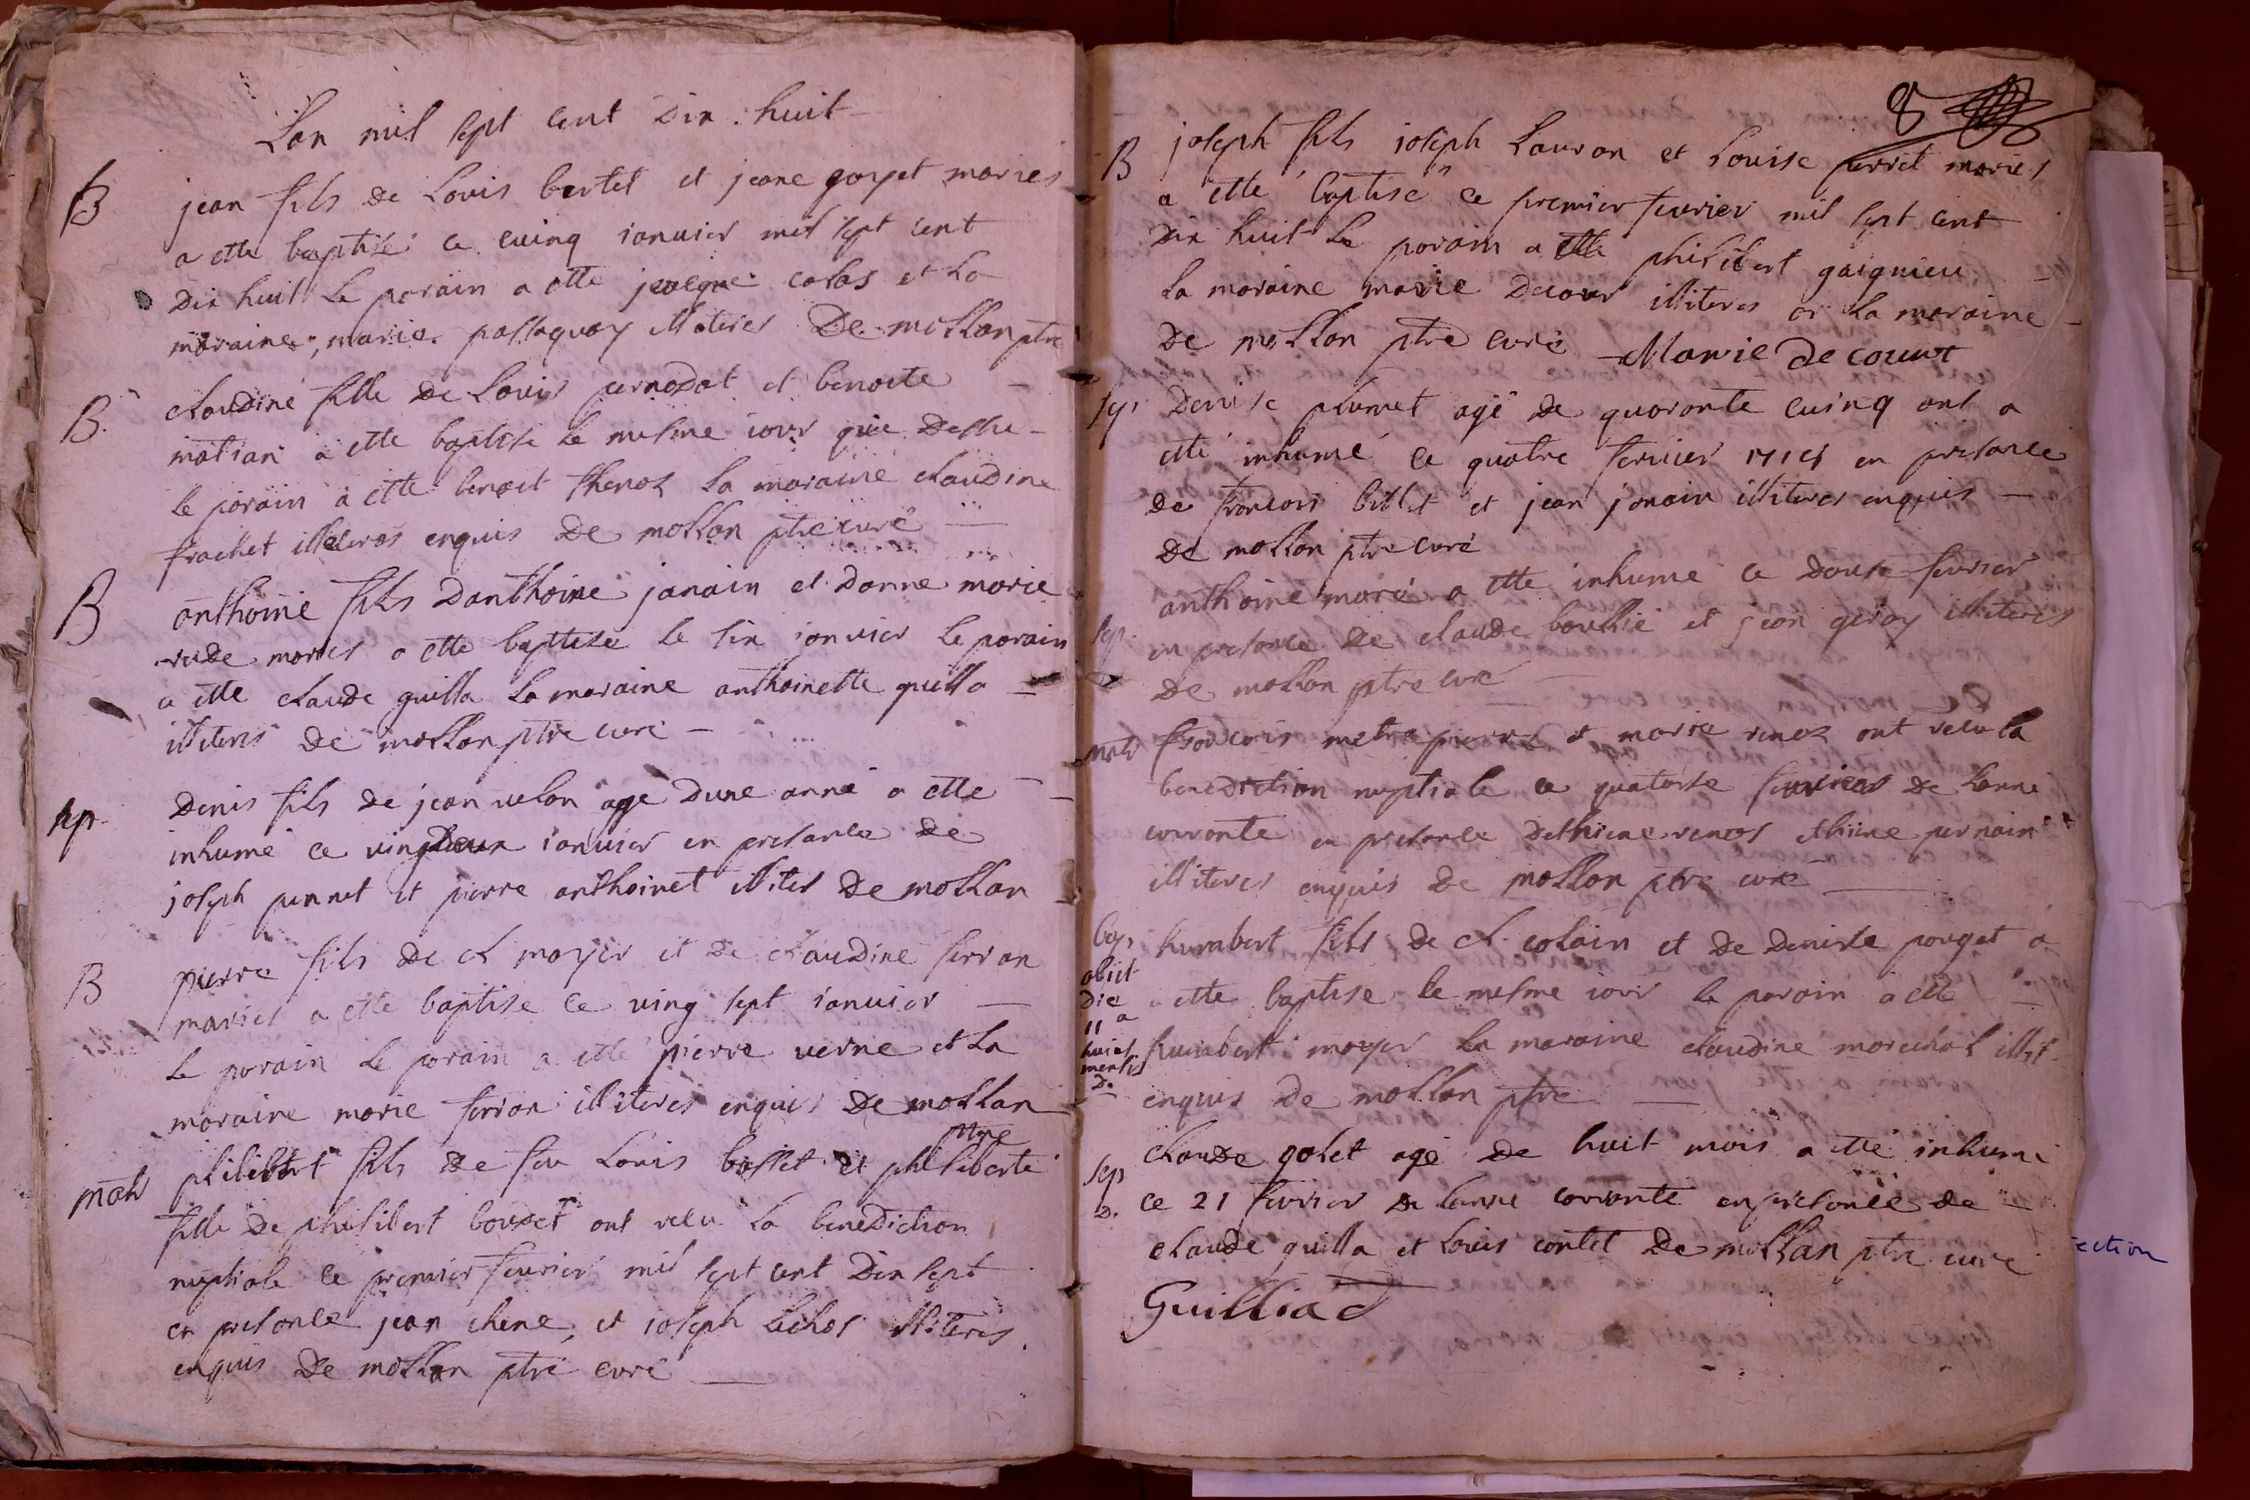 Lan mil sept cent Dix huit
B
jean fils de Louis bertet et jeane goyet maries
a ette baptisé ce cuinq ianvier mil sept cent
Dix huit Le parain a ette jacque colas et La
maraine, marie passaquay illiteres De mollon ptre
B.
claudine fille de Louis pernodat et benoite
matian a ette baptise Le mesme iour que Dessu
le parain a ette benoit thenoz La maraine claudine
frachet illiteres enquis De mollon ptre curé
B
anthoine fils Danthoine janain et Danne marie
rude maries a ette baptize le six ianvier Le parain
a ette claude guilla La maraine anthoinette guilla
illiteres De mollon ptre curé
sep.
Denis fils de jean velon age Dune anné a ette
inhumé ce vingdeux ianvier en presance de
joseph pennet et pierre anthoinet illites De mollon
B
pierre fils de cl mayer et de claudine ferran
maries a ette baptise ce ving sept ianvier
Le parain Le parain a etté pierre verne et La
maraine marie ferran illiteres enquis De mollon
mar
philibert fils de feu Louis basset et philiberte
fille de philibert bouvet ont receu La benediction
nuptiale ce premier fevrier mil sept cent Dix sept
en presance jean chene, et ioseph Lachos illiteres
enquis De mollon ptre curé
8
B
joseph fils ioseph Lauron et Louise perret maries
a etté baptisé ce premier fevrier mil sept cent
Dix huit Le parain a ette philibert gaignieu
La maraine marie Decour illiteres or La maraine
De mollon ptre curé Marie de court
sep
Denise plumet agé de quarante cuinq ans a
etté inhumé ce quatre fevrier 1718 en presance
de francois billet et jean janain illiteres enquis
De mollon ptre curé
sep.
anthoine maré a ette inhume ce douze fevrier
en presance de claude boullié et jean giroy illiteres
De mollon ptre curé
mar
francois metrapierre et marie renoz ont receu La
benediction nuptiale ce quatorse fevrier de Lanne
courante en presance Dethiene renoz ethiene pernain
illiteres enquis De mollon ptre curé
bap
obiit
Die
11 a
huius
mensis
D.
humbert fils de cl. colain et de denise pouget a
a ette baptise le mesme iour le parain a ette
humbert mayer La maraine claudine marechal illit.
enquis De mollon ptre
sep
D.
claude golet agé de huit mois a etté inhumé
ce 21 fevrier de lanne courante enpresance de
claude guilla et Louis contet De mollon ptre curé
Guilliad
ection